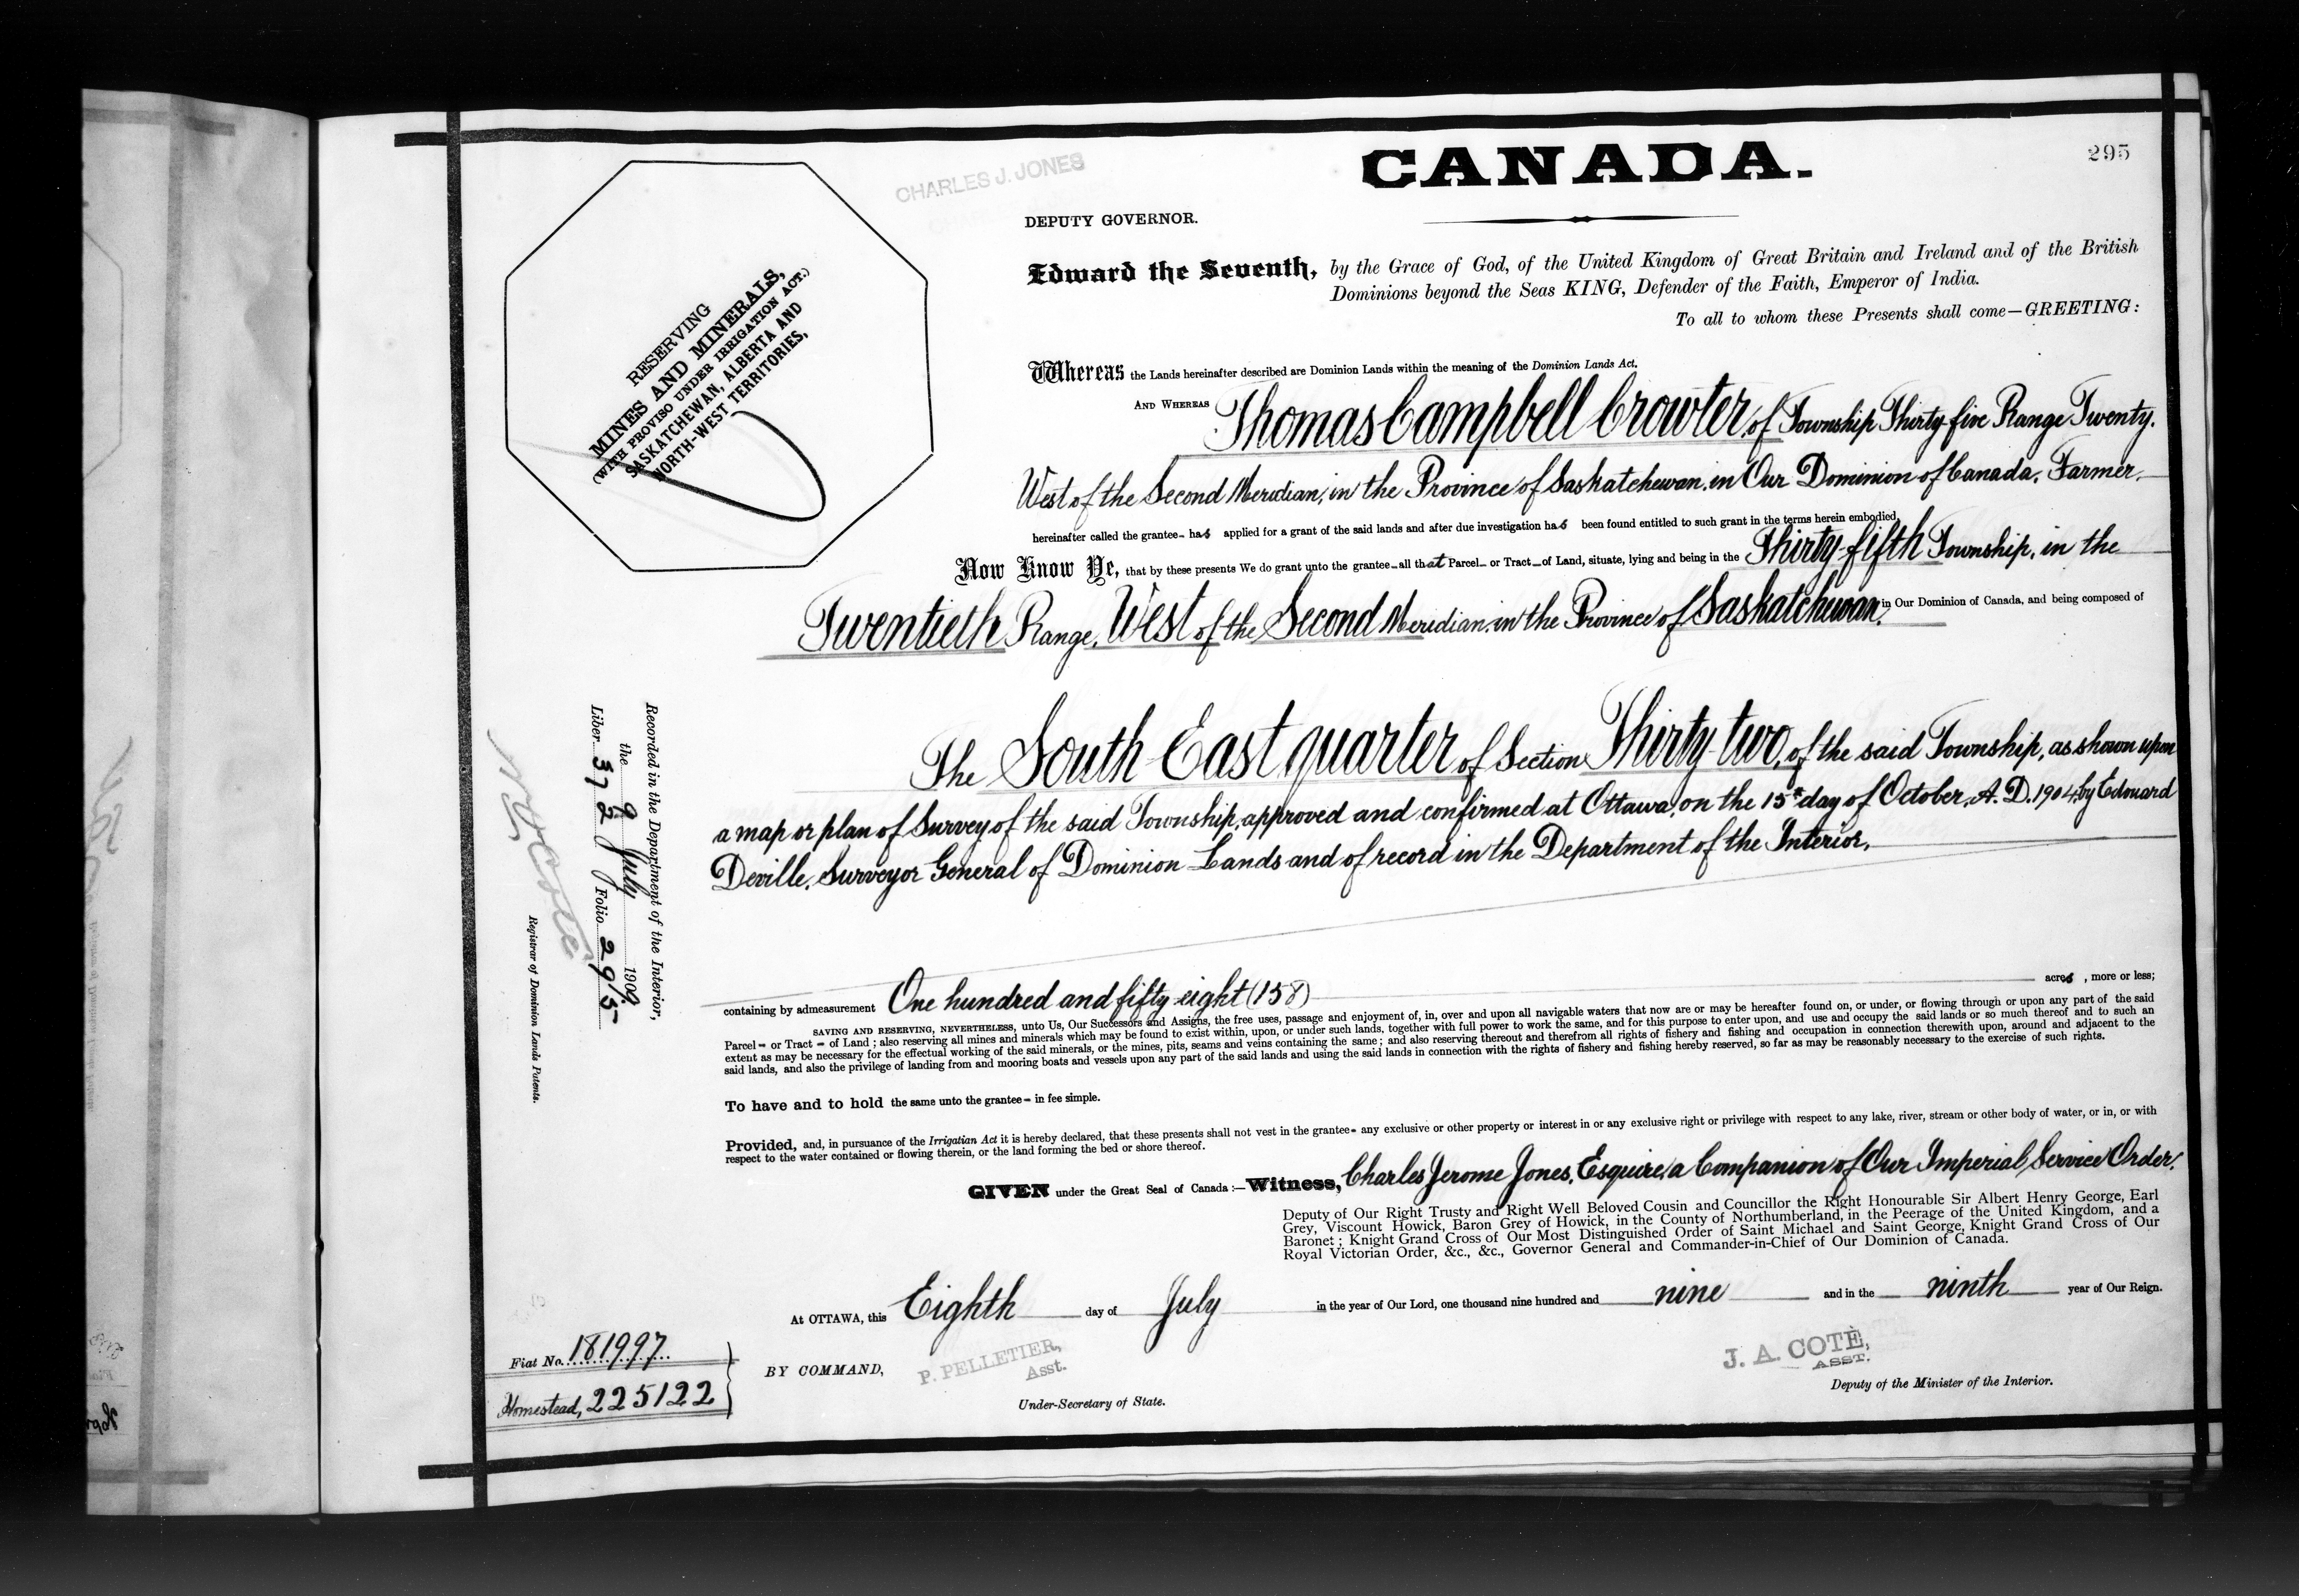 295
CANADA.
CHARLES J. JONES
DEPUTY GOVERNOR.
RESERVING
MINES AND MINERALS,
(WITH PROVISO UNDER IRRIGATION ACT.)
SASKATCHEWAN, ALBERTA AND
NORTH-WEST TERRITORIES,
Edward the Seventh, by the Grace of God, of the United Kingdom of Great Britain and Ireland and of the British
Dominions beyond the Seas KING, Defender of the Faith, Emperor of India.
To all to whom these Presents shall come—GREETING:
Whereas the Lands hereinafter described are Dominion Lands within the meaning of the Dominion Lands Act.
AND WHEREAS Thomas Campbell Crowter, of Township Thirty five Range Twenty.
West of the Second Meridian, in the Province of Saskatchewan, in Our Dominion of Canada, Farmer.
hereinafter called the grantee- has applied for a grant of the said lands and after due investigation has been found entitled to such grant in the terms herein embodied,
Now Know Ye, that by these presents We do grant unto the grantee—all that Parcel— or Tract—of Land, situate, lying and being in the Thirty-fifth Township, in the
Twentieth Range, West of the Second Meridian, in the Province of Saskatchewan, in Our Dominion of Canada, and being composed of
The South East quarter of Section Thirty-two, of the said Township, as shown upon
a map or plan of Survey of the said Township, approved and confirmed at Ottawa, on the 15th day of October, A. D. 1904, by Edouard
Deville, Surveyor General of Dominion Lands and of record in the Department of the Interior.
containing by admeasurement One hundred and fifty eight (158) acres, more or less;
SAVING AND RESERVING, NEVERTHELESS, unto Us, Our Successors and Assigns, the free uses, passage and enjoyment of, in, over and upon all navigable waters that now are or may be hereafter found on, or under, or flowing through or upon any part of the said
Parcel— or Tract — of Land; also reserving all mines and minerals which may be found to exist within, upon, or under such lands, together with full power to work the same, and for this purpose to enter upon, and use and occupy the said lands or so much thereof and to such an
extent as may be necessary for the effectual working of the said minerals, or the mines, pits, seams and veins containing the same; and also reserving thereout and therefrom all rights of fishery and fishing and occupation in connection therewith upon, around and adjacent to the
said lands, and also the privilege of landing from and mooring boats and vessels upon any part of the said lands and using the said lands in connection with the rights of fishery and fishing hereby reserved, so far as may be reasonably necessary to the exercise of such rights.
To have and to hold the same unto the grantee— in fee simple.
Provided, and, in pursuance of the Irrigation Act it is hereby declared, that these presents shall not vest in the grantee— any exclusive or other property or interest in or any exclusive right or privilege with respect to any lake, river, stream or other body of water, or in, or with
respect to the water contained or flowing therein, or the land forming the bed or shore thereof.
GIVEN under the Great Seal of Canada:—Witness, Charles Jerome Jones, Esquire, a Companion of Our Imperial Service Order,
Deputy of Our Right Trusty and Right Well Beloved Cousin and Councillor the Right Honourable Sir Albert Henry George, Earl
Grey, Viscount Howick, Baron Grey of Howick, in the County of Northumberland, in the Peerage of the United Kingdom, and a
Baronet; Knight Grand Cross of Our Most Distinguished Order of Saint Michael and Saint George, Knight Grand Cross of Our
Royal Victorian Order, &c., &c., Governor General and Commander-in-Chief of Our Dominion of Canada.
At OTTAWA, this Eighth day of July in the year of Our Lord, one thousand nine hundred and nine and in the ninth year of Our Reign.
BY COMMAND,
P. PELLETIER,
Asst.
Under-Secretary of State.
J. A. COTÈ,
ASST.
Deputy of the Minister of the Interior.
Fiat No. 181997
Homestead, 225122
Recorded in the Department of the Interior,
the 9 July 1909.
Liber 372 Folio 295
Registrar of Dominion Lands Patents.